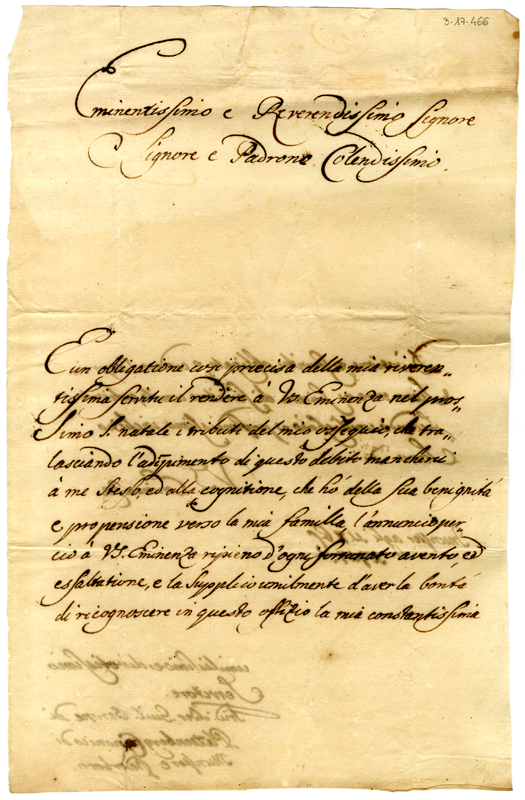 3-17-466
Eminentissimo e Reverendissimo Signore
Signore e Padrone Colendissimo.
E un obligatione così precisa della mia riveren-
tissima servitù il rendere à Vra Eminenza nel pros-
simo S. natale i tributi del mio ossequio, che tra-
lasciando l'adempimento di questo debito mancherei
à me stesso, ed alla cognitione, che hò della sua benignità
e propensione verso la mia familla, l'annuncio per
ciò à V.S. Eminenza ripieno d'ogni fortunato avento, ed
essaltatione, e la supplico umilmente d'aver la bontà
di ricognoscere in questo offizio la mia constantissima